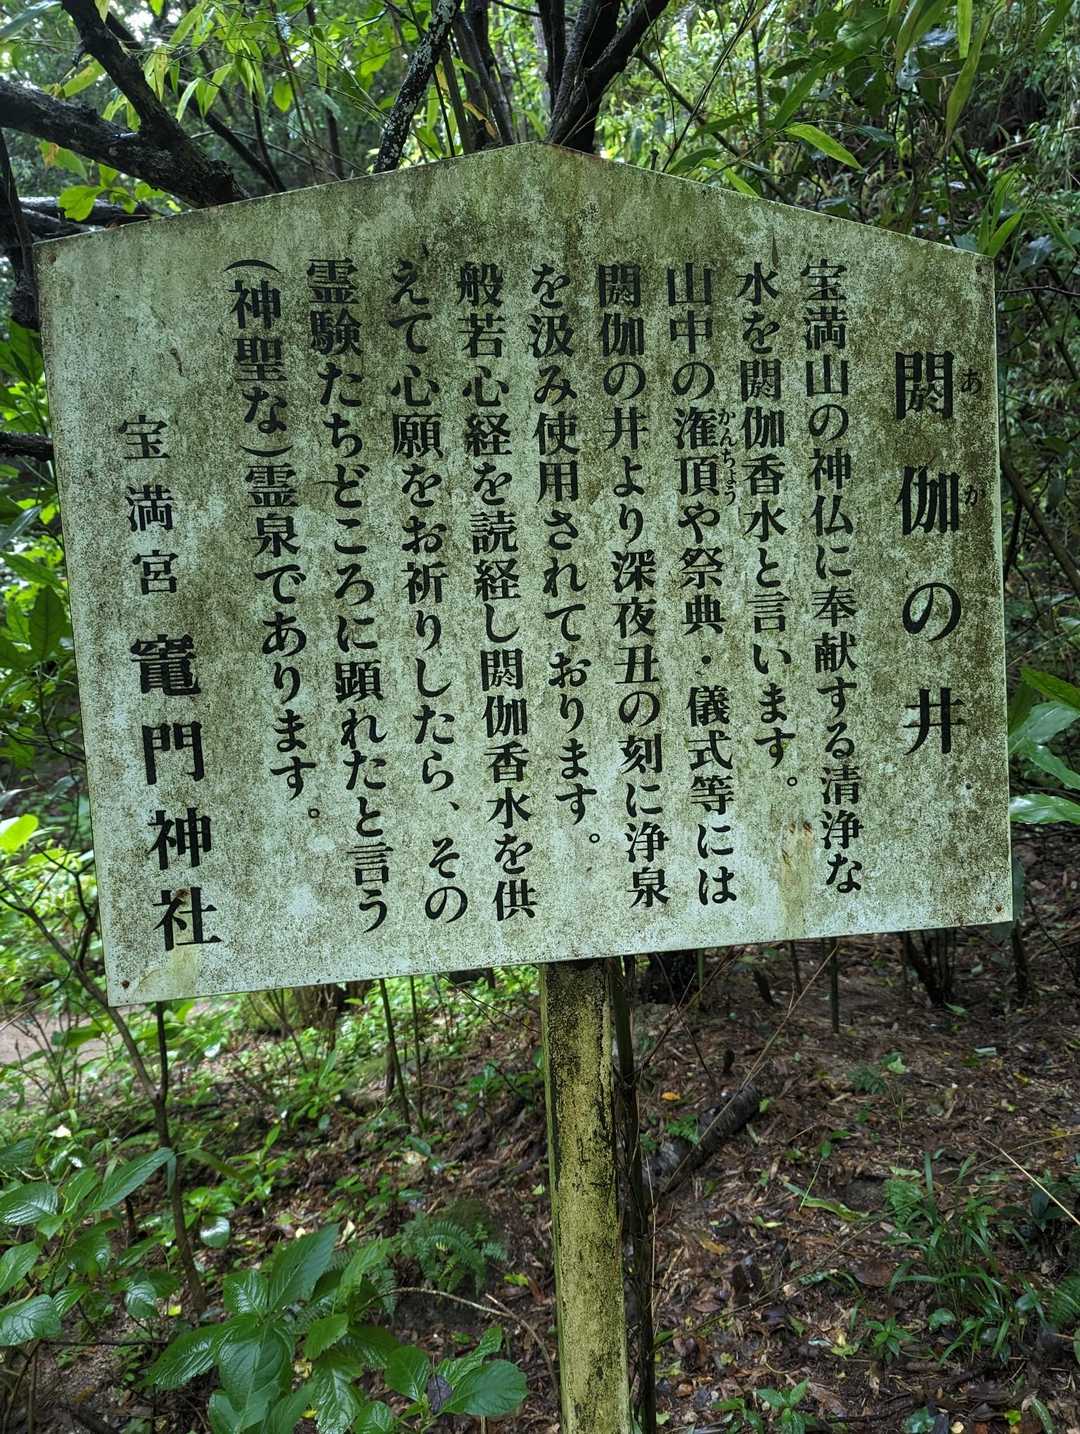 閼伽の井
あか
宝満山の神仏に奉献する清浄な
水を閼伽香水と言います。
山中の潅頂や祭典・儀式等には
かんちょう
閼伽の井より深夜丑の刻に浄泉
を汲み使用されております。
般若心経を読経し閼伽香水を供
えて心願をお祈りしたら、その
霊験たちどころに顕れたと言う
(神聖な)霊泉であります。
宝満宮 竈門神社